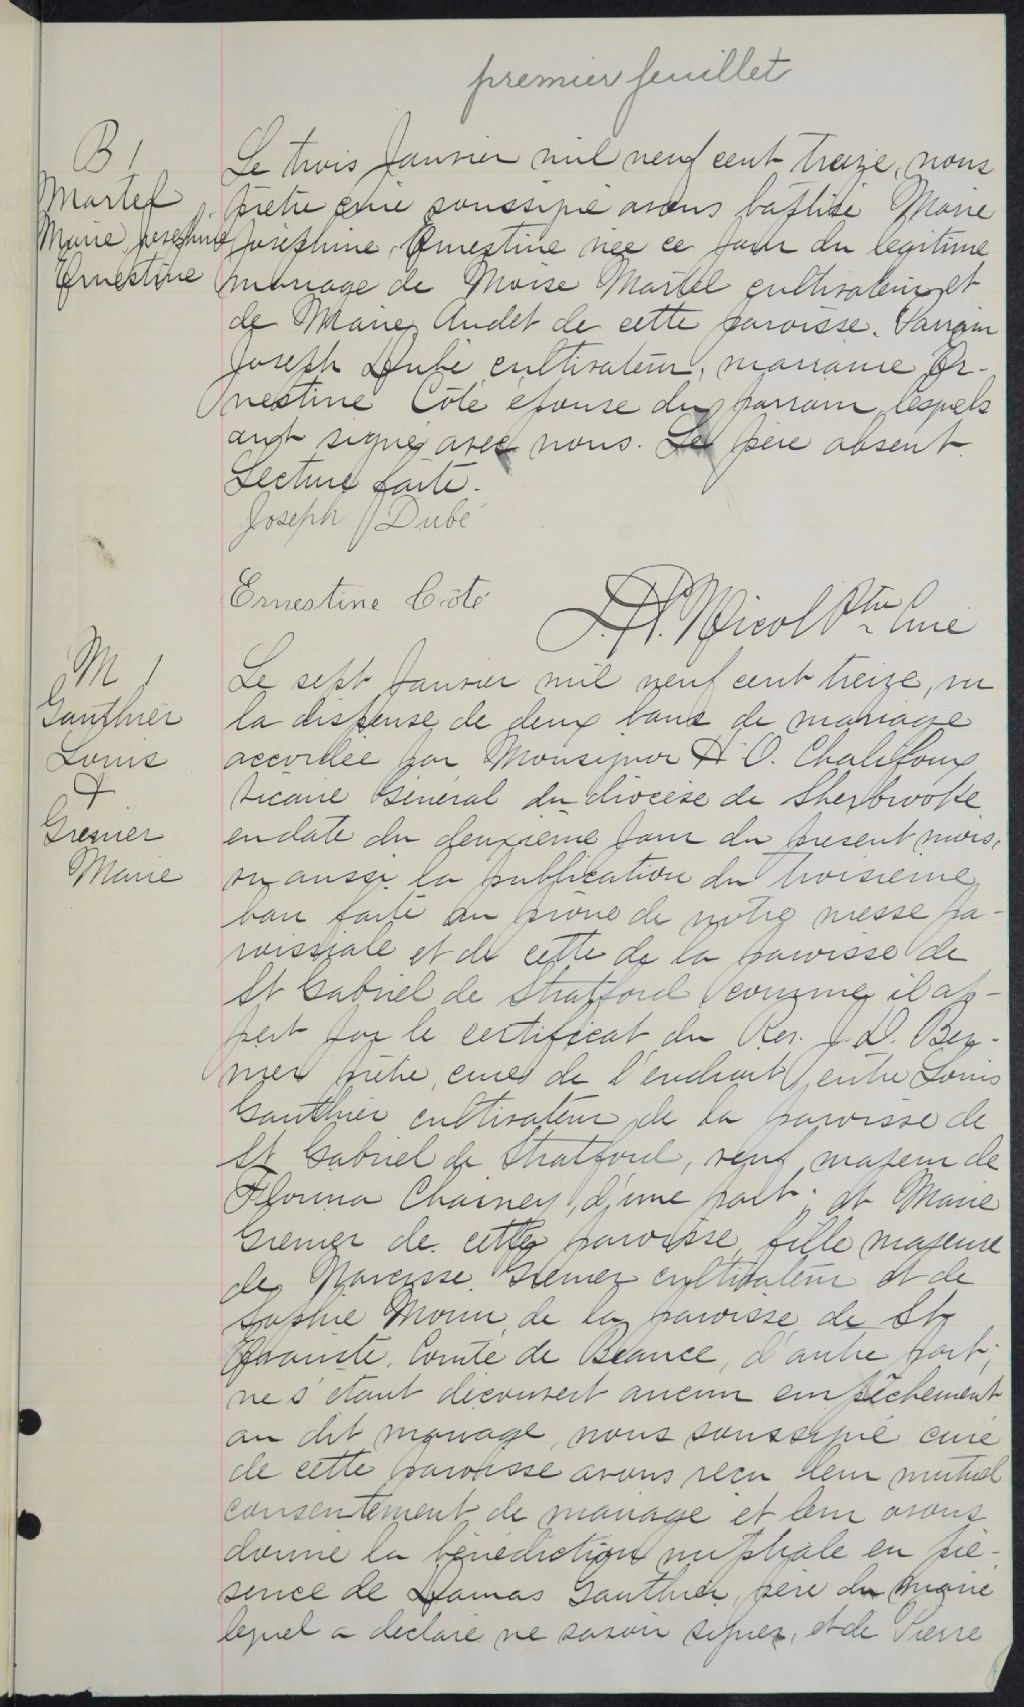 premier feuillet
B 1
Martel
Marie Josephine
Ernestine
Le trois Janvier mil neuf cent treize, nous
prêtre curé soussigné avons baptisé Marie
Joséphine Ernestine née ce jour du légitime
mariage de Moise Martel cultivateur et
de Marie Audet de cette paroisse. Parrain
Joseph Dubé cultivateur, marraine Er-
nestine Côté épouse du parrain lesquels
ont signé avec nous. Le père absent.
Lecture faite.
Joseph Dubé
Ernestine Côté
Nicol Ptre Curé
M 1
Gauthier
Louis
&
Grenier
Marie
Le sept Janvier mil neuf cent treize, vu
la dispense de deux bans de mariage
accordée par Monsignor H. O. Chalifoux
Vicaire Général du diocèse de Sherbrooke
en date du deuxième jour du present mois,
vu aussi la publication du troisième
ban faite au prône de notre messe pa-
roissiale et de celle de la paroisse de
St Gabriel de Stratford comme il ap-
pert par le certificat du Rev. J. D. Ber-
nier prêtre, curé de l'endroit, entre Louis
Gauthier cultivateur de la paroisse de
St Gabriel de Stratford, veuf majeur de
Florina Chainey, d'une part; et Marie
Grenier de cette paroisse, fille majeure
de Narcisse Grenier cultivateur et de
Sophie Morin, de la paroisse de St
Comté de Beauce, d'autre part;
ne s'étant découvert aucun empêchement
au dit mariage, nous soussigné curé
de cette paroisse avons reçu leur mutuel
consentement de mariage et leur avons
donné la bénédiction nuptiale en pré-
sence de Damas Gauthier, père du marié
lequel a déclaré ne savoir signer, et de Pierre